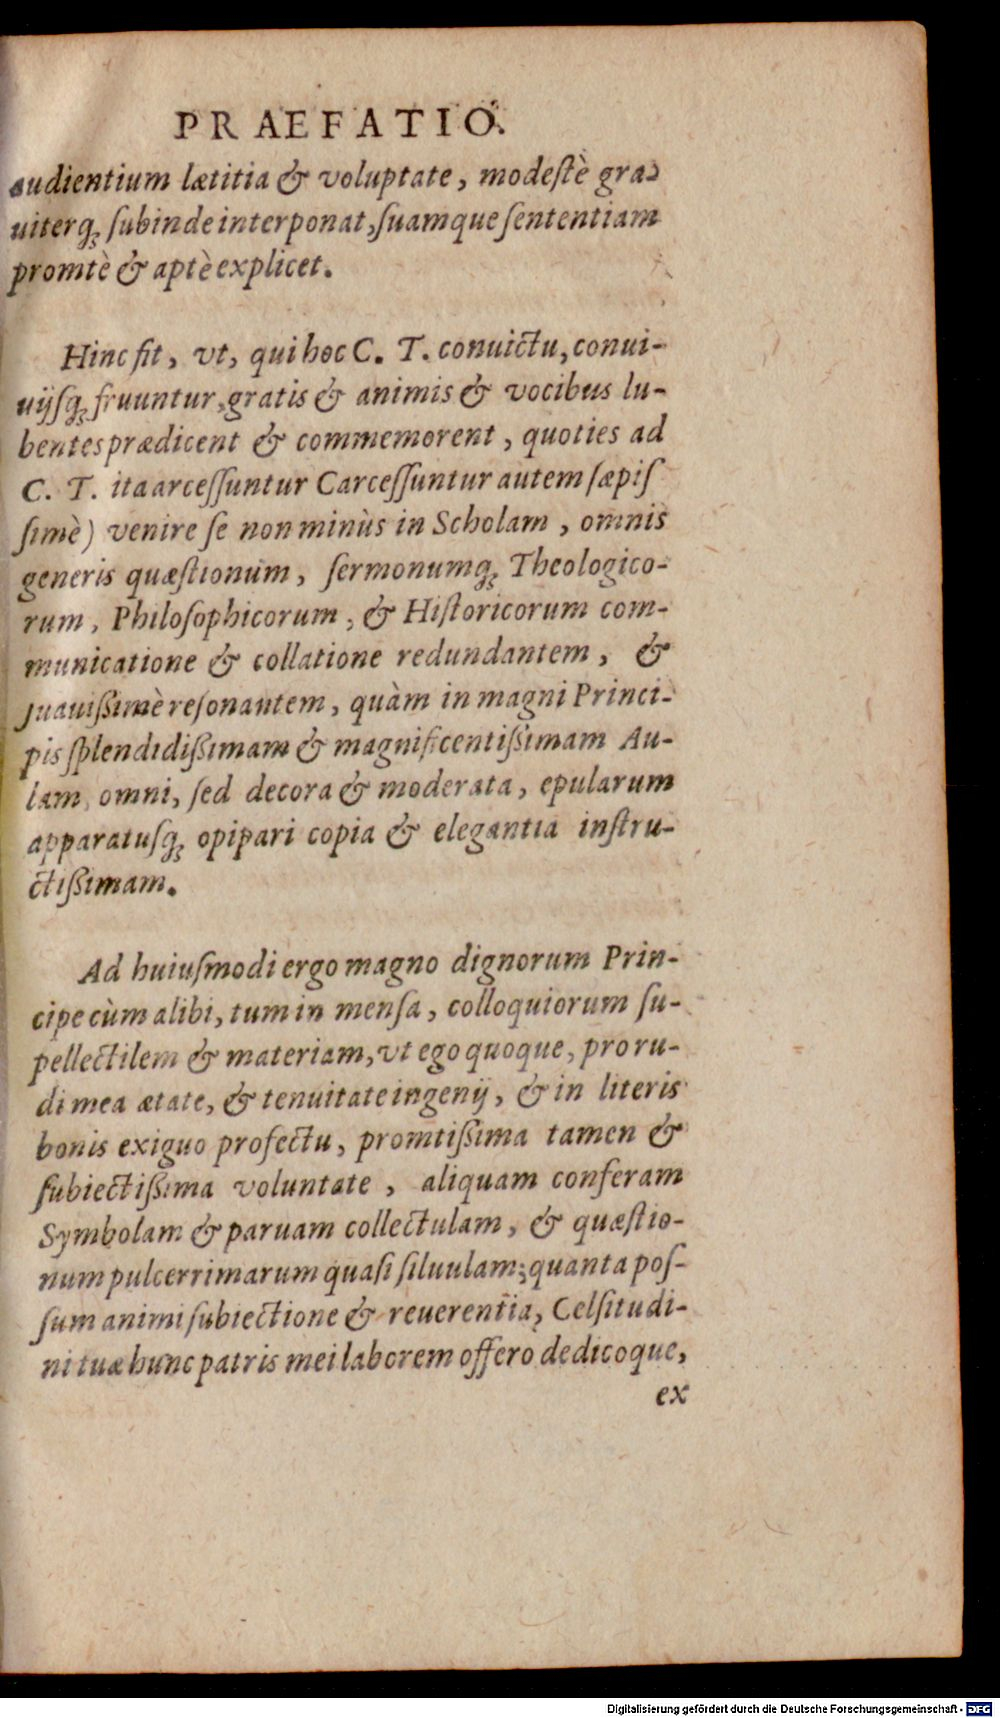 PRAEFATIO.
audientium lætitia & voluptate, modeſtè gra-
uiterq́; ſubinde interponat, ſuamque ſententiam
promtè & aptè explicet.
Hinc fit, vt, qui hoc C. T. conuictu, conui-
uijſq́; fruuntur, gratis & animis & vocibus lu-
bentes prædicent & commemorent, quoties ad
C. T. ita arceſſuntur (arceſſuntur autem ſæpiſ
ſimè) venire ſe non minùs in Scholam, omnis
generis quæſtionum, ſermonumq́; Theologico-
rum, Philoſophicorum, & Hiſtoricorum com-
municatione & collatione redundantem, &
ſuauißimè reſonantem, quàm in magni Princi-
pis ſplendidißimam & magnificentißimam Au-
lam, omni, ſed decora & moderata, epularum
apparatuſq́; opipari copia & elegantia inſtru-
ctißimam.
Ad huiuſmodi ergo magno dignorum Prin-
cipe cùm alibi, tum in menſa, colloquiorum ſu-
pellectilem & materiam, vt ego quoque, pro ru-
di mea ætate, & tenuitate ingenij, & in literis
bonis exiguo profectu, promtißima tamen &
ſubiectißima voluntate, aliquam conferam
Symbolam & paruam collectulam, & quæſtio-
num pulcerrimarum quaſi ſiluulam; quanta poſ-
ſum animi ſubiectione & reuerentia, Celſitudi-
ni tuæ hunc patris mei laborem offero dedicoque,
ex
Digitalisierung gefördert durch die Deutsche Forschungsgemeinschaft - DFG